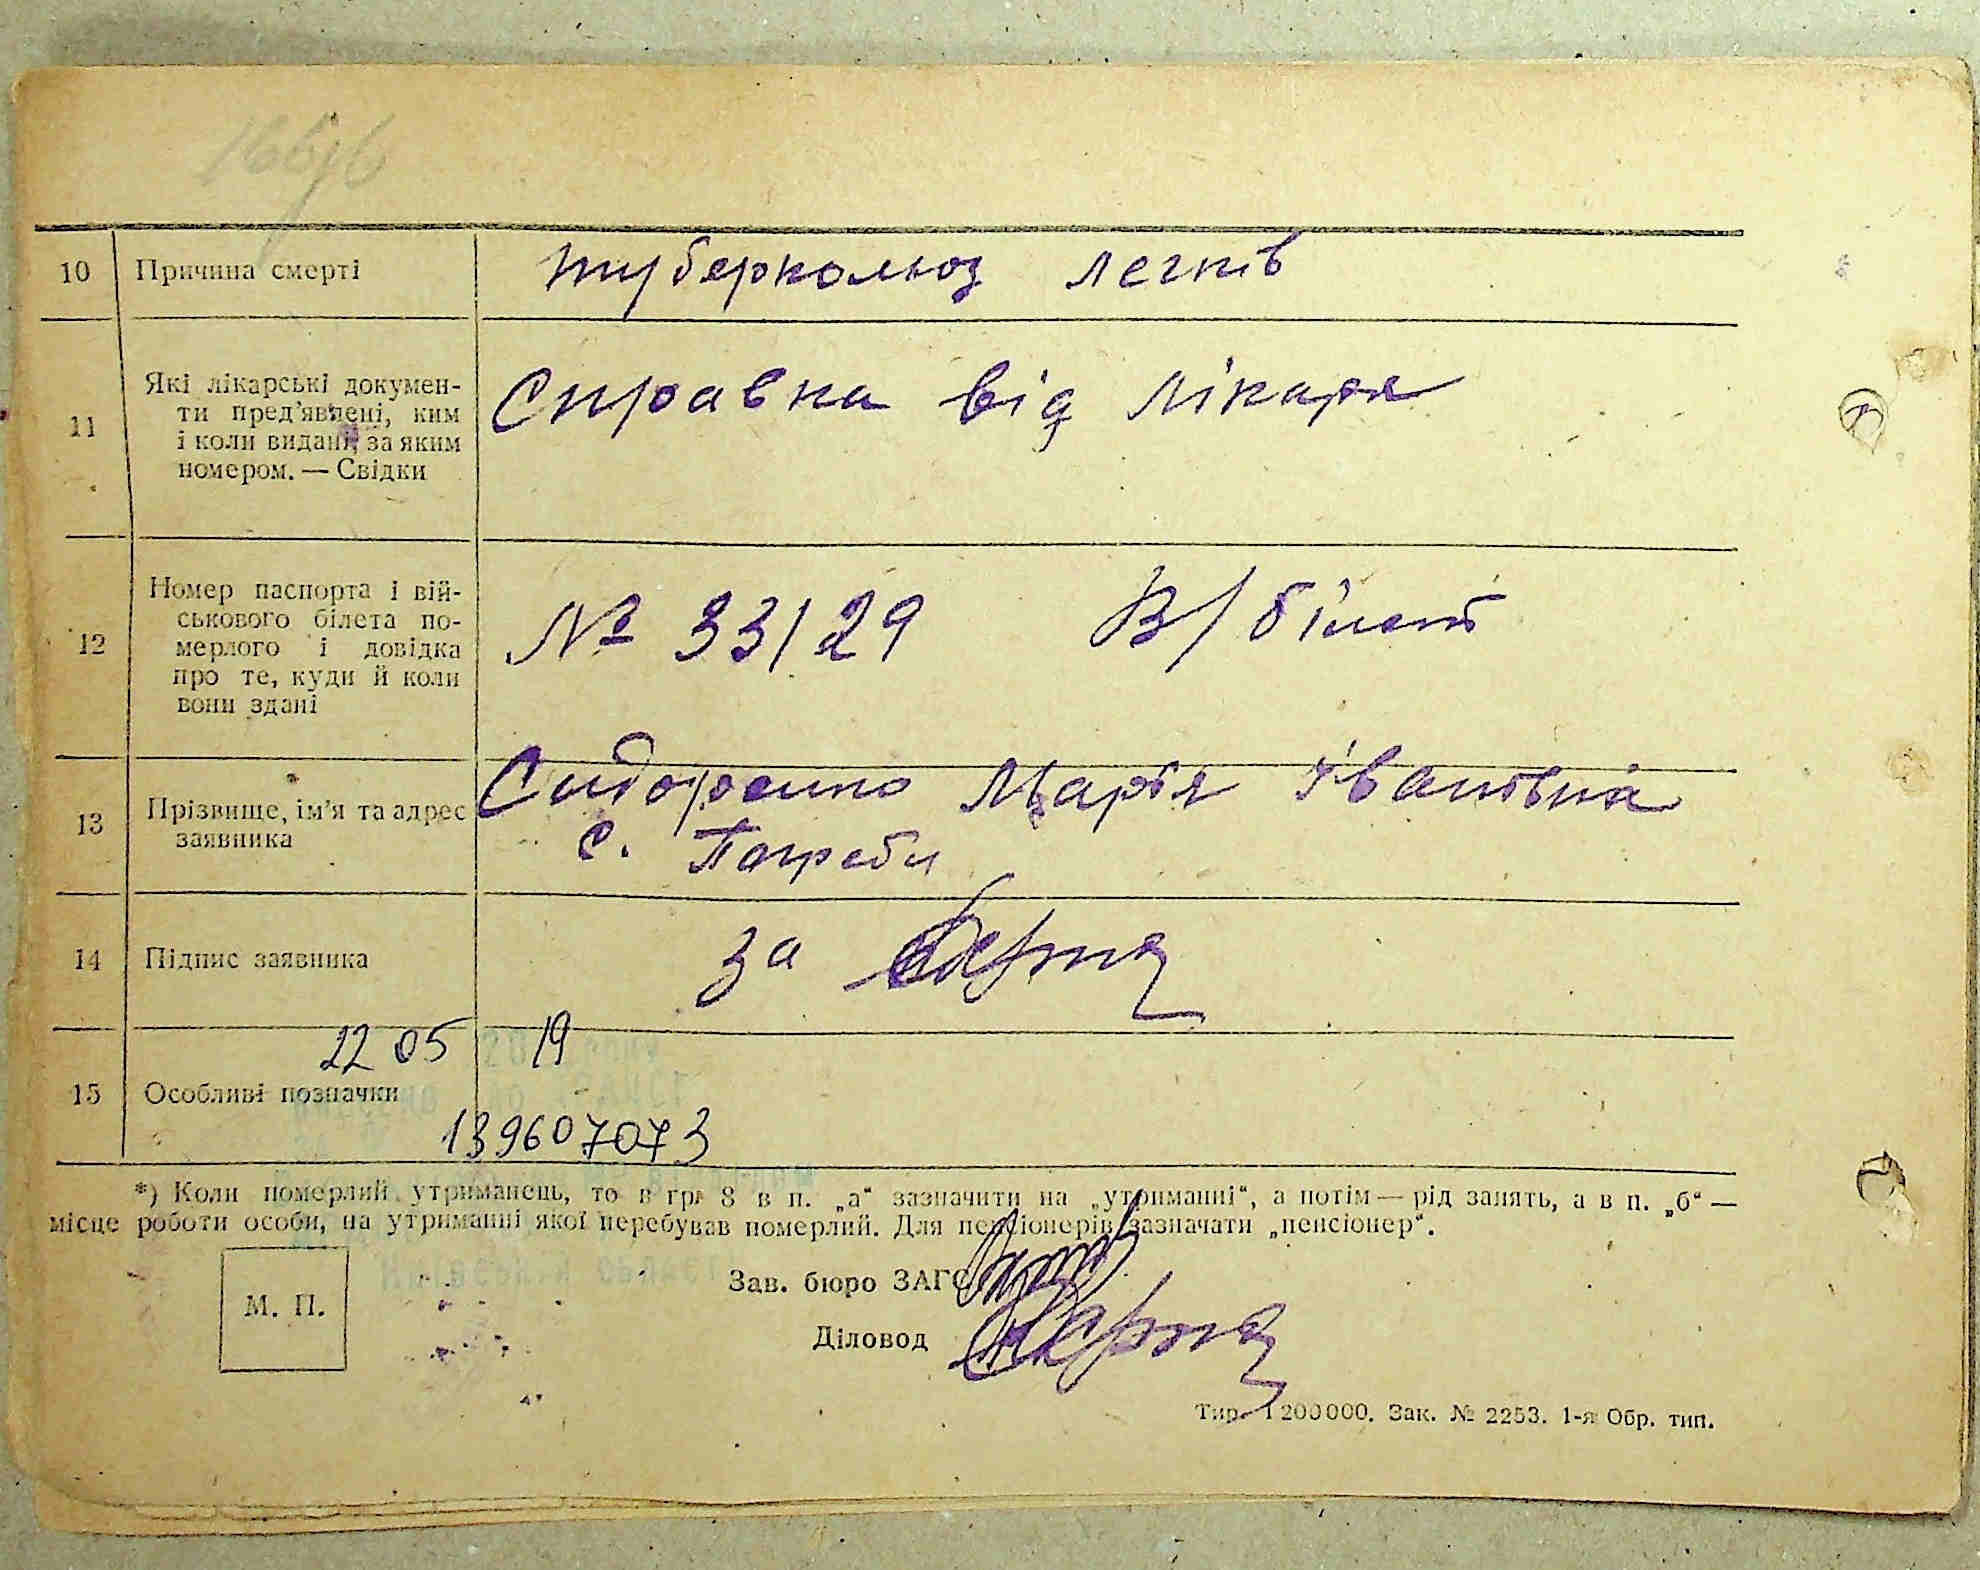 10 Причина смерті туберкольоз легків
11 Які лікарські докумен-
ти пред'явлені, ким
і коли видані, за яким
номером. — Свідки
Справка від лікаря
12 Номер паспорта і вій-
ськового білета по-
мерлого і довідка
про те, куди й коли
вони здані
№ 33/29 В/білет
13 Прізвище, ім'я та адрес
заявника
Сидоренко Марія Іванівна
с. Погреби
14 Підпис заявника за
22 05 19
15 Особливі позначки
139607073
*) Коли померлий утриманець, то в гр. 8 в п. „а“ зазначити на „утриманні“, а потім — рід занять, а в п. „б“ —
місце роботи особи, на утриманні якої перебував померлий. Для пенсіонерів зазначати „пенсіонер“.
М. П.
Зав. бюро ЗАГС
Діловод
Тир. 1 200 000. Зак. № 2253. 1-я Обр. тип.